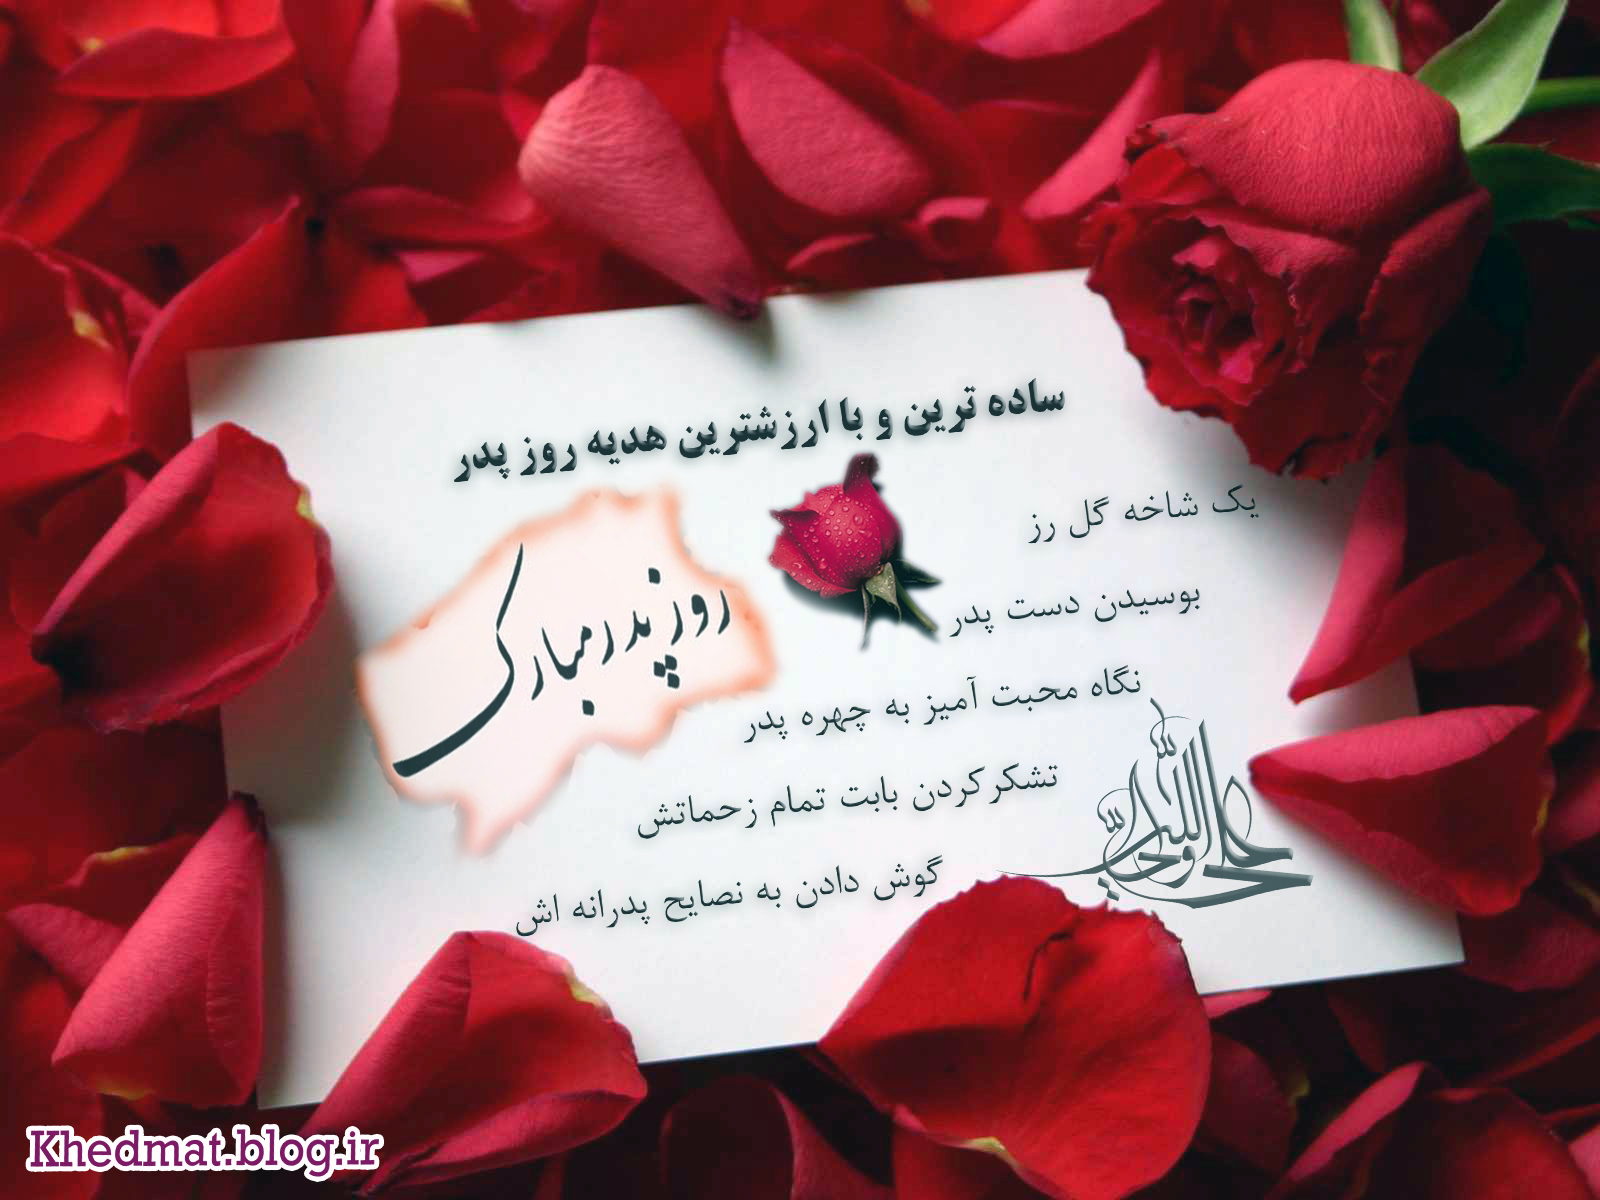 ساده ترین و با ارزشترین هدیه روز پدر
یک شاخه گل رز
بوسیدن دست پدر
نگاه محبت آمیز به چهره پدر
تشکر کردن بابت تمام زحماتش
گوش دادن به نصایح پدرانه اش
روز پدر مبارک
علی ولی الله
Khedmat.blog.ir